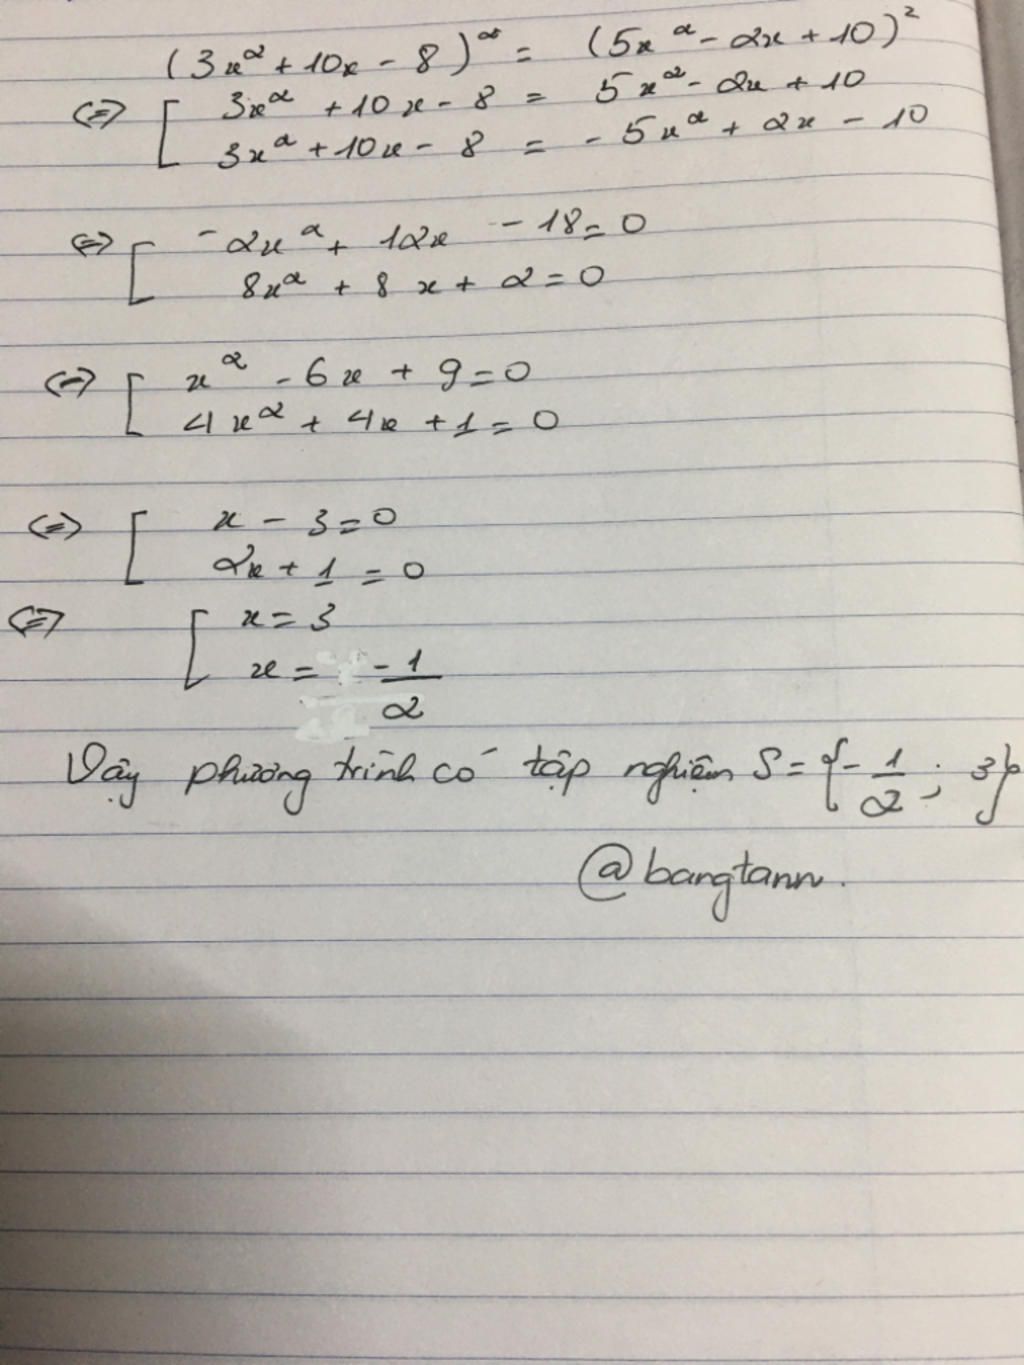 (3x² + 10x - 8)² = (5x² - 2x + 10)²
⇔ [ 3x² + 10x - 8 = 5x² - 2x + 10
3x² + 10x - 8 = - 5x² + 2x - 10
⇔ [ -2x² + 12x - 18 = 0
8x² + 8x + 2 = 0
⇔ [ x² - 6x + 9 = 0
4x² + 4x + 1 = 0
⇔ [ x - 3 = 0
2x + 1 = 0
⇔ [ x = 3
x = -1/2
Vậy phương trình có tập nghiệm S = {-1/2; 3}
@bangtann.